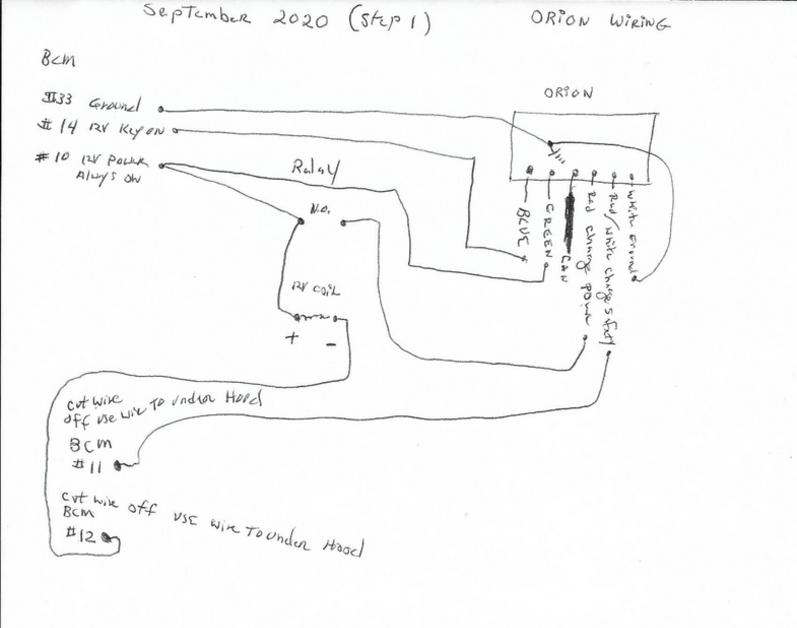 September 2020 (Step 1)
ORION WIRING
BCM
#33 Ground
#14 12V Key on
#10 12V Power
Always on
ORION
Relay
N.O.
12V COIL
+
-
BLUE
GREEN
CAN
Red charge power
Red/white charge safety
white Ground
cut wire
off use wire To under Hood
BCM
#11
cut wire off use wire To under Hood
BCM
#12